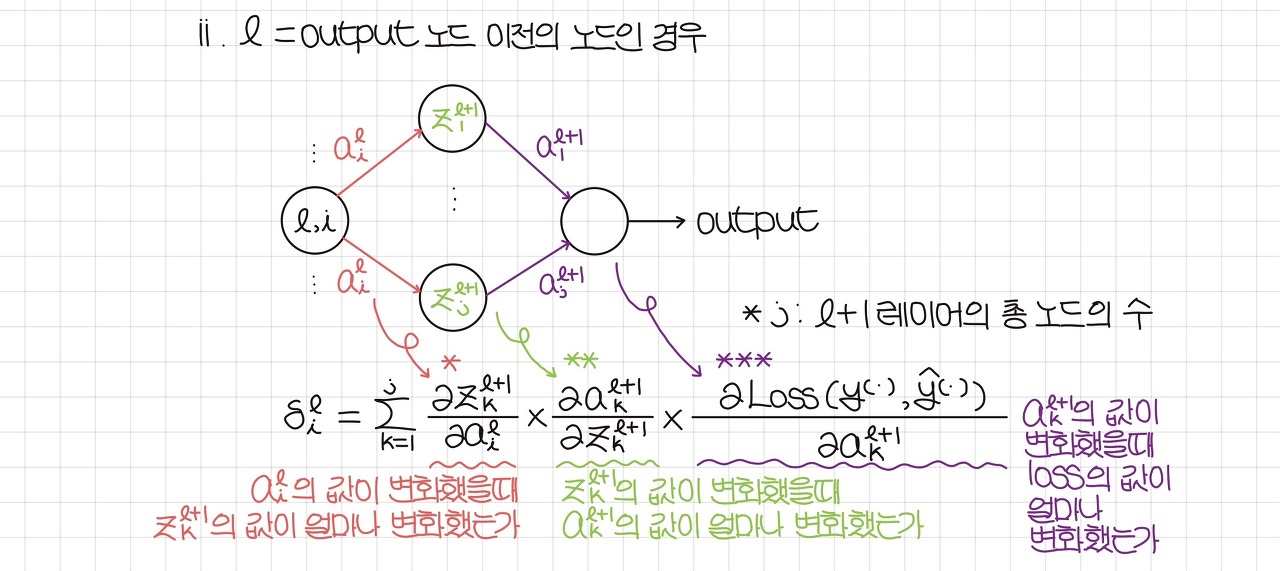 ii. ℓ = output 노드 이전의 노드인 경우
z₁^{ℓ+1}
⋮ aᵢ^ℓ
a₁^{ℓ+1}
⋮
ℓ,i
output
⋮ aᵢ^ℓ
zⱼ^{ℓ+1}
aⱼ^{ℓ+1}
* j : ℓ+1 레이어의 총 노드의 수
* ** ***
δᵢ^ℓ = Σ_{k=1}^{j} ∂z_k^{ℓ+1}/∂aᵢ^ℓ × ∂a_k^{ℓ+1}/∂z_k^{ℓ+1} × ∂Loss(y^{(·)}, ŷ^{(·)})/∂a_k^{ℓ+1}
aᵢ^ℓ의 값이 변화했을때
z_k^{ℓ+1}의 값이 얼마나 변화했는가
z_k^{ℓ+1}의 값이 변화했을때
a_k^{ℓ+1}의 값이 얼마나 변화했는가
a_k^{ℓ+1}의 값이
변화했을때
loss의 값이
얼마나
변화했는가